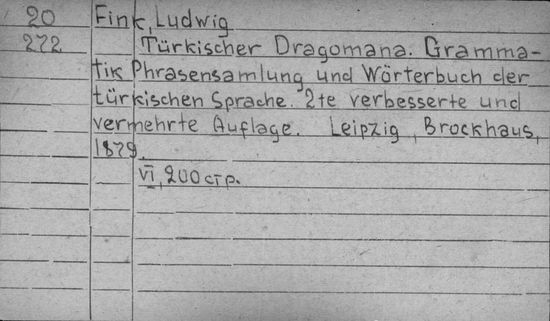 20 Fink, Ludwig
272 Türkischer Dragomana. Gramma-
tik Phrasensamlung und Wörterbuch der
türkischen Sprache. 2te verbesserte und
vermehrte Auflage. Leipzig, Brockhaus,
1879.
VI, 200 стр.